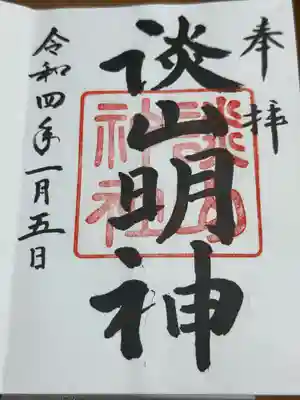 奉拝
談山明神
談山神社
令和四年一月五日